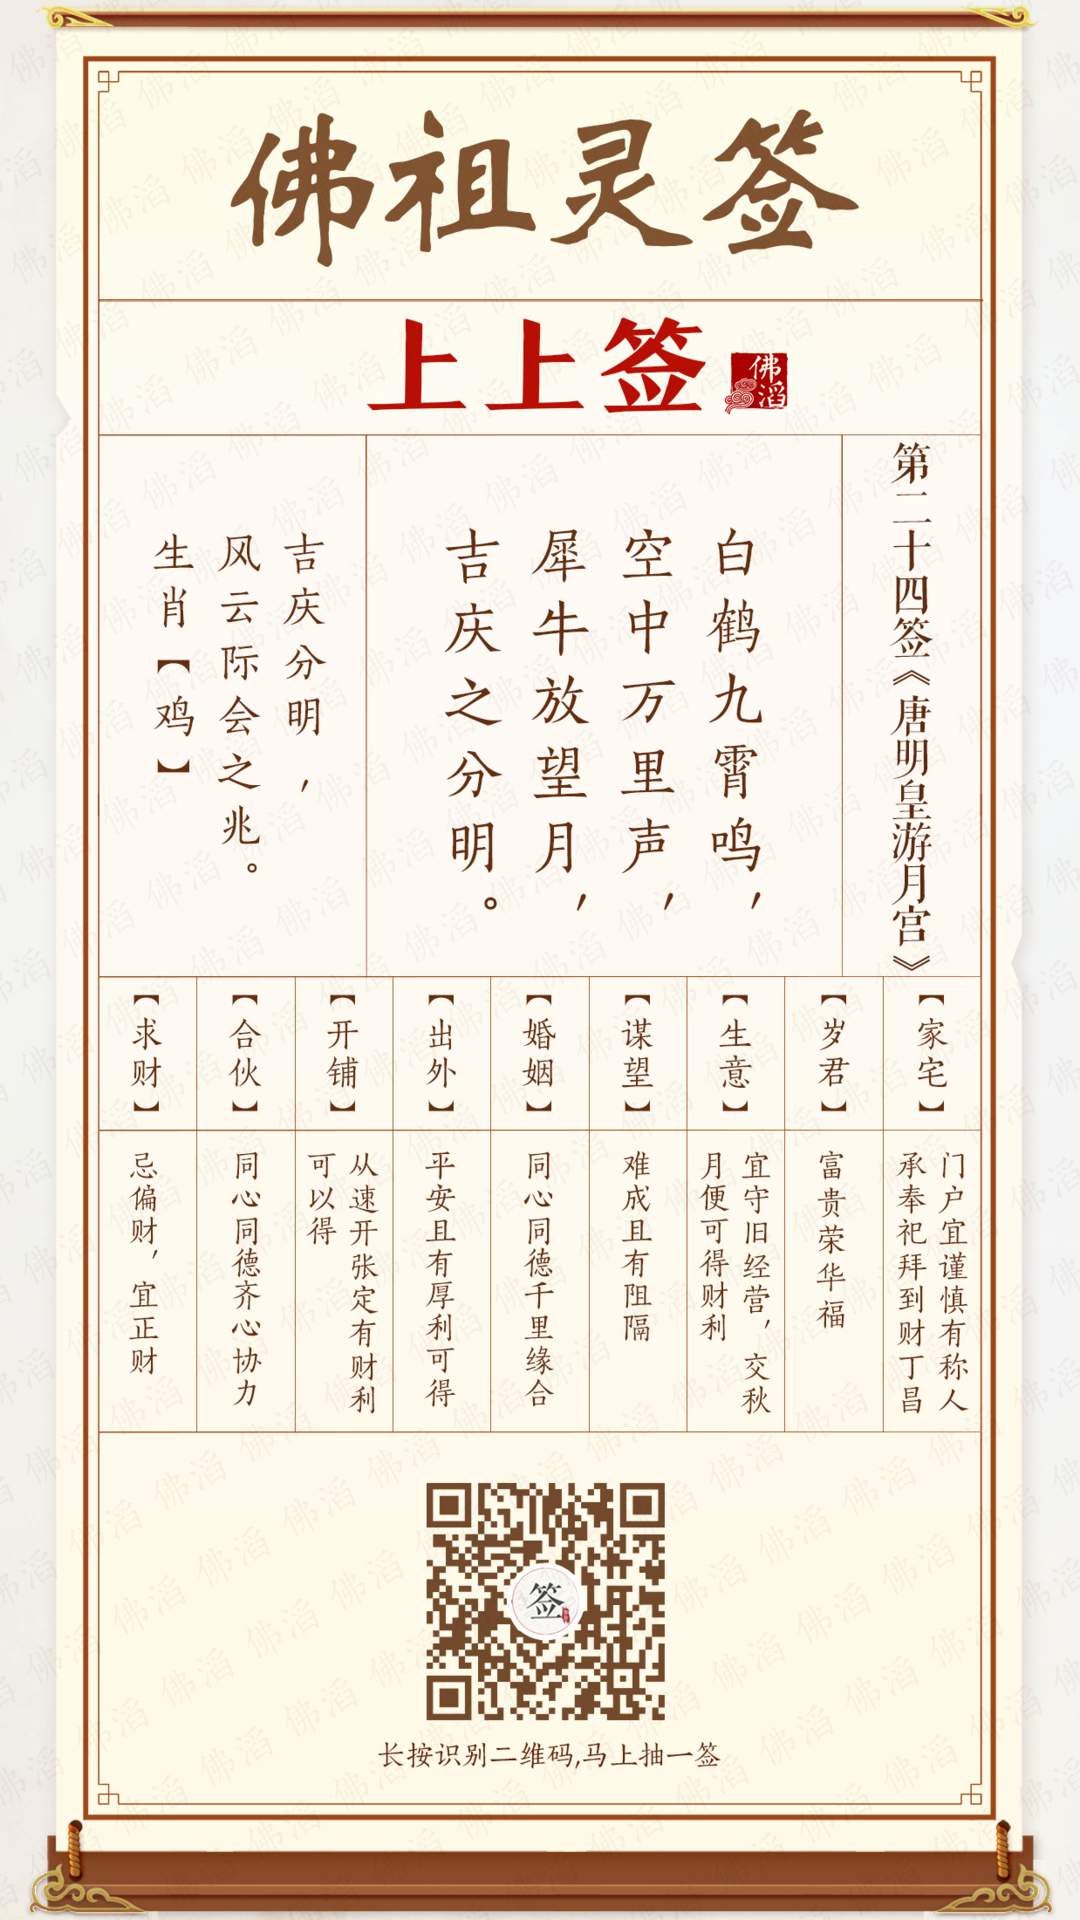 佛祖灵签
上上签
佛滔
第二十四签《唐明皇游月宫》
白鹤九霄鸣，
空中万里声，
犀牛放望月，
吉庆之分明。
吉庆分明，
风云际会之兆。
生肖【鸡】
【家宅】
门户宜谨慎有称人
承奉祀拜到财丁昌
【岁君】
富贵荣华福
【生意】
宜守旧经营，交秋
月便可得财利
【谋望】
难成且有阻隔
【婚姻】
同心同德千里缘合
【出外】
平安且有厚利可得
【开铺】
从速开张定有财利
可以得
【合伙】
同心同德齐心协力
【求财】
忌偏财，宜正财
签
长按识别二维码,马上抽一签